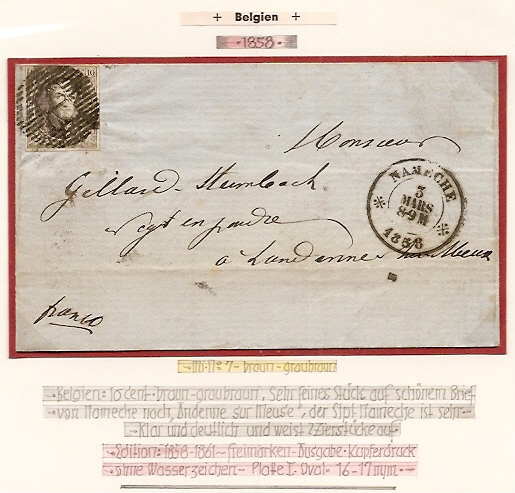 + Belgien +
· 1858 ·
10
Monsieur
Gillard-Steinbach
à Landenne sur Meuse
NAMECHE
3
MARS
8-9M
1858
franco
-Mi. No 7 - braun - graubraun
Belgien: 10 cent-braun-graubraun, Sehr feines Stück auf schönem Brief
von Nameche nach „Andenne sur Meuse", der Stpl Nameche ist sehr
klar und deutlich und weist 2 Zierstücke auf
Edition: 1858-1861 - Freimarken-Ausgabe. Kupferdruck
ohne Wasserzeichen - Platte I. Oval - 16-17mm -